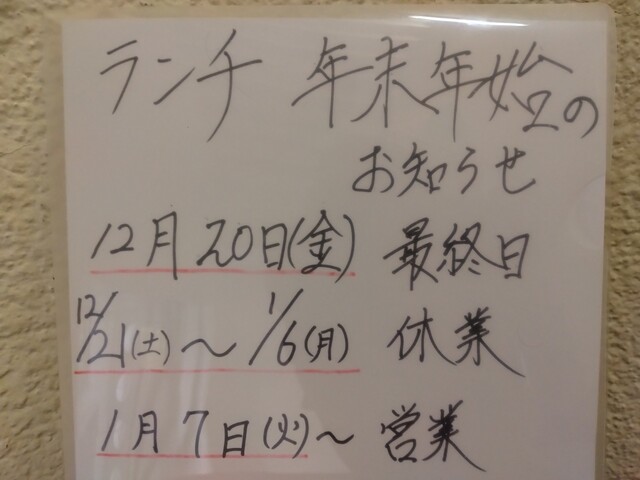 ランチ 年末年始の
お知らせ
12月20日(金) 最終日
12/21(土)〜1/6(月) 休業
1月7日(火)〜 営業